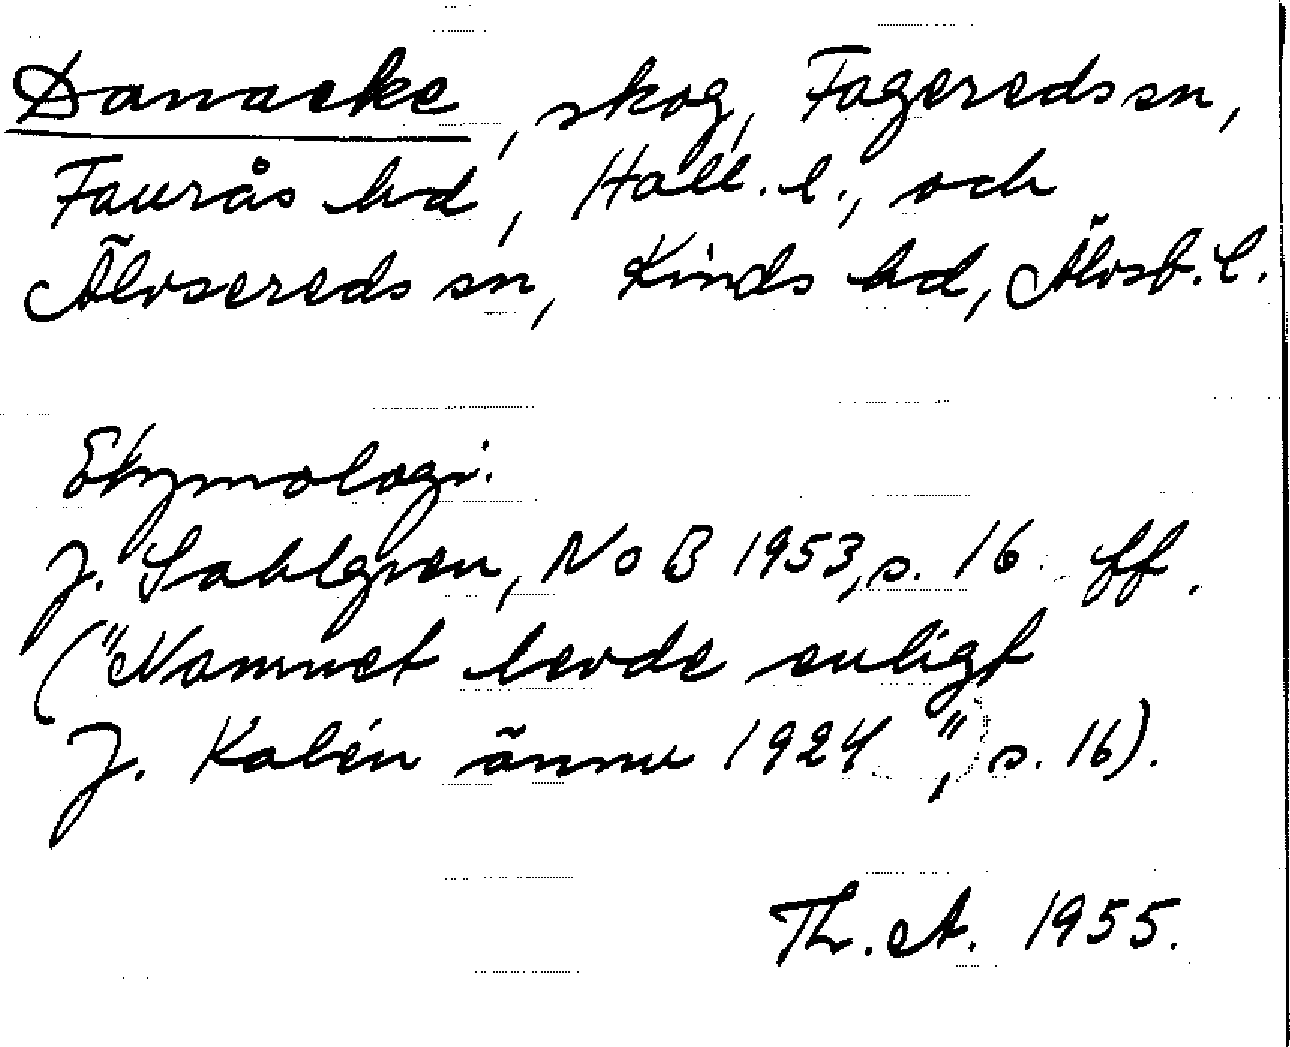 Danaeke, skog, Fagereds sn,
Faurås hd, Hall. l., och
Älvsereds sn, Kinds hd, Älvsb. l.
Etymologi.
J. Sahlgren, NoB 1953, s. 16 ff.
("Namnet levde enligt
J. Kalén ännu 1924", s. 16).
Th. A. 1955.